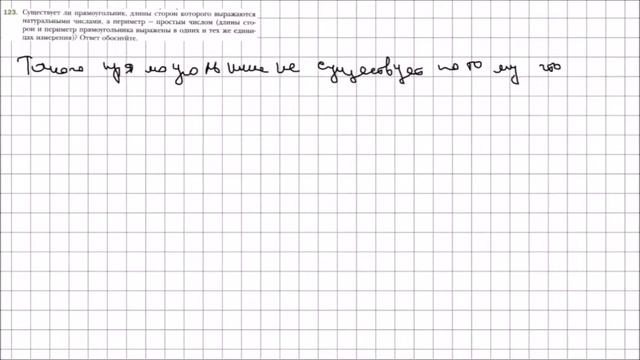 123. Существует ли прямоугольник, длины сторон которого выражаются
натуральными числами, а периметр — простым числом (длины сто-
рон и периметр прямоугольника выражены в одних и тех же едини-
цах измерения)? Ответ обоснуйте.
Такого прямоугольника не существует потому что